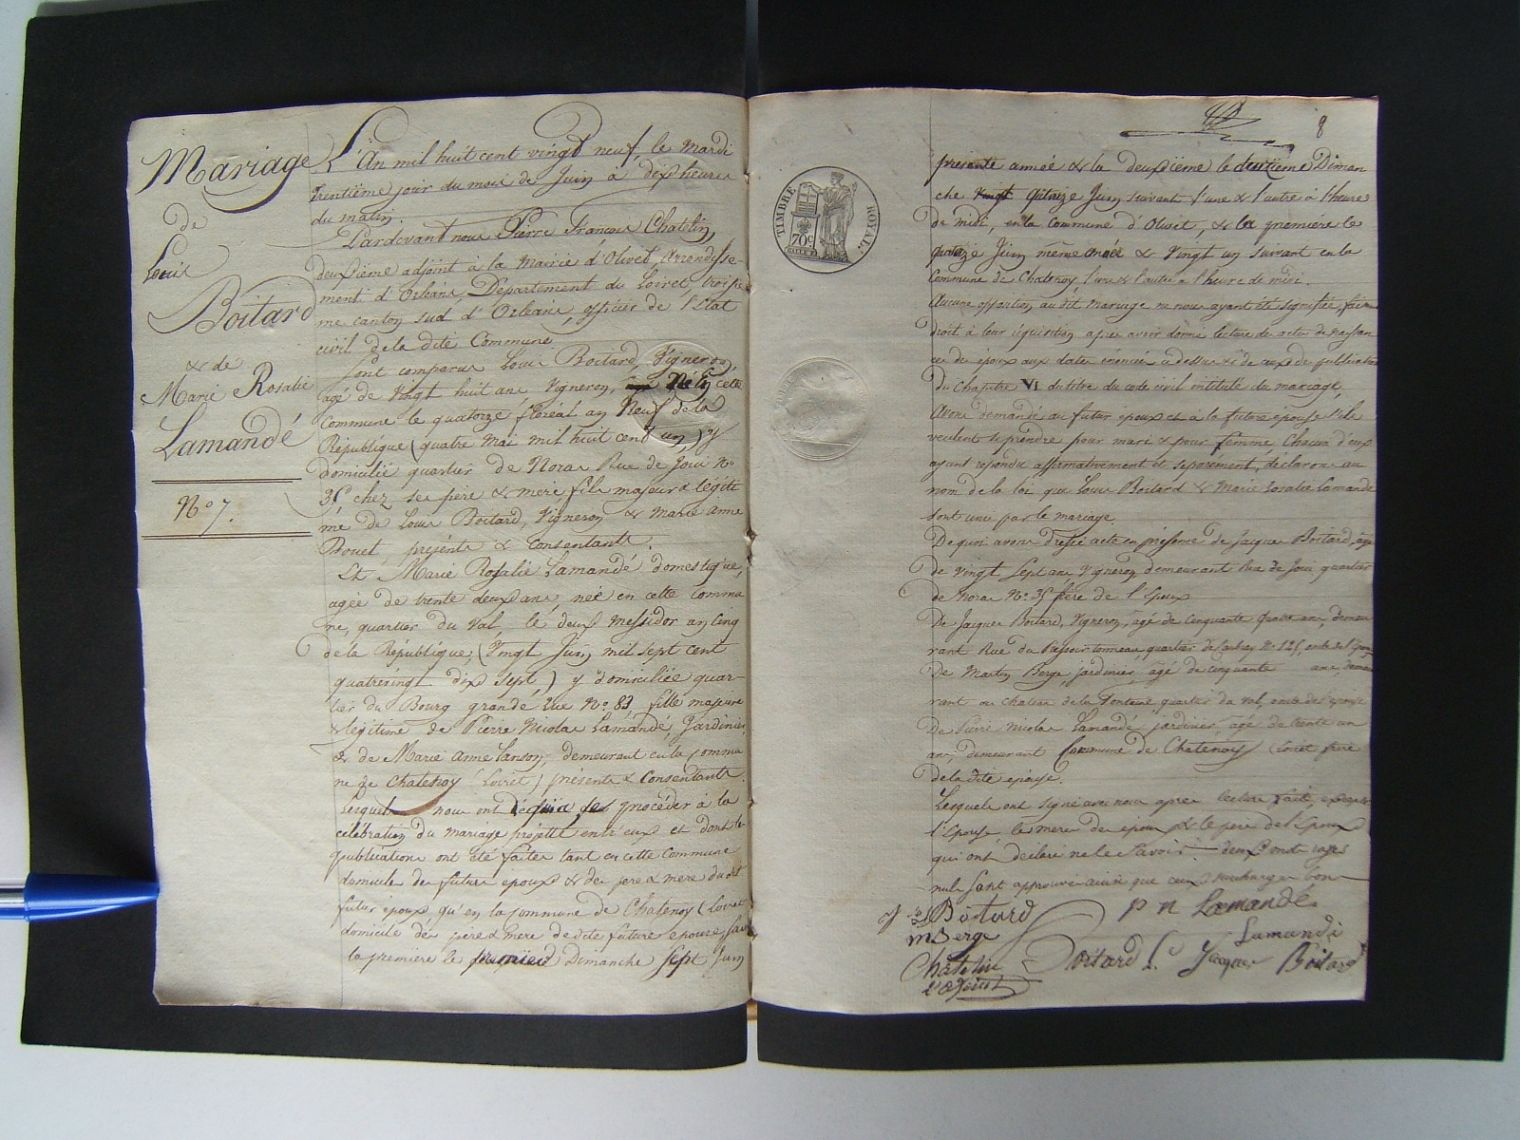 Mariage
de
Louis
Boitard
& de
Marie Rosalie
Lamandé
No 7.
L'An mil huit cent vingt neuf, le mardi
trentième jour du mois de Juin à dix heures
du matin.
Pardevant nous Pierre François Chatelin,
deuxième adjoint à la Mairie d'Olivet, Arrondisse-
ment d'Orléans, Département du Loiret, troisiè
me canton sud d'Orléans, officier de l'Etat
civil de la dite Commune
sont comparus Louis Boitard, Vigneron,
agé de Vingt huit ans, Vigneron, Né en cette
Commune le quatorze floréal an Neuf de la
République (quatre Mai mil huit cent un) y
domicilié quartier de Noras Rue de Joui No
35 chez ses père & mere fils majeur & légiti
me de Louis Boitard, Vigneron & Marie Anne
présents & Consentants.
Et Marie Rosalie Lamandé domestique,
agée de trente deux ans, née en cette commu
ne, quartier du Val le deux Messidor an Cinq
de la République, (Vingt Juin mil sept cent
quatrevingt dix sept) y domiciliée quar-
tier du Bourg grande rue No 83, fille majeure
& légitime de Pierre Nicolas Lamandé, Jardinier,
& de Marie Anne Lanson, demeurant en la commu
ne de Chatenoy (Loiret) présents & Consentants.
Lesquels nous ont de procéder à la
célébration du mariage projetté entre eux et dont les
publications ont été faites tant en cette Commune
domicile du futur epoux & de ses pere & mere dudit
futur époux, qu'en la commune de Chatenoy (Loiret)
domicile des père & mere de dite future epouse, savoir
la première le premier Dimanche sept Juin
8
TIMBRE ROYAL
70c
présente année & la deuxième le deuxieme Diman
che vingt quatorze Juin suivant l'une & l'autre à l'heure
de midi, en la Commune d'Olivet, & la première le
quatorze Juin même mois & Vingt un suivant en la
Commune de Chatenoy l'une & l'autre à l'heure de midi.
Aucune opposition au dit mariage ne nous ayant été signifiée, faisant
droit à leur réquisition, après avoir donné lecture des actes de naissan
ces des époux aux dates énoncées cidessus & de ceux de publication
du Chapitre VI du titre du code civil intitulé du mariage,
Avons demandé au futur époux et à la future épouse s'ils
veulent se prendre pour mari & pour femme, Chacun d'eux
ayant répondu affirmativement et séparément, déclarons au
nom de la loi que Louis Boitard & Marie Rosalie Lamandé
sont unis par le mariage
De quoi avons dressé acte en présence de Jacques Boitard, âgé
de Vingt Sept ans Vigneron demeurant Rue de Joui quartier
de Noras No 35 frère de l'époux
De Jacques Boitard, Vigneron, âgé de Cinquante quatre ans, demeu
rant Rue du Pressoir tonneau, quartier de Caubray No 125, oncle de l'époux
De Martin Berge, jardinier, âgé de cinquante ans, demeu
rant au chateau de la Fontaine quartier du Val, oncle de l'épouse
De Pierre Nicolas Lamandé, jardinier, agé de trente un
ans, demeurant Commune de Chatenoy (Loiret frère
de la dite epouse.
Lesquels ont signé avec nous après lecture faite, excepté
l'épouse, les meres des époux & le père de l'époux
qui ont déclaré ne le Savoir. deux mots rayés
nuls sont approuvés ainsi que ceux surchargés bons
Boitard P N Lamandé
M Berge Lamandé
Chatelin Boitard L. Jacques Boitard
L'adjoint